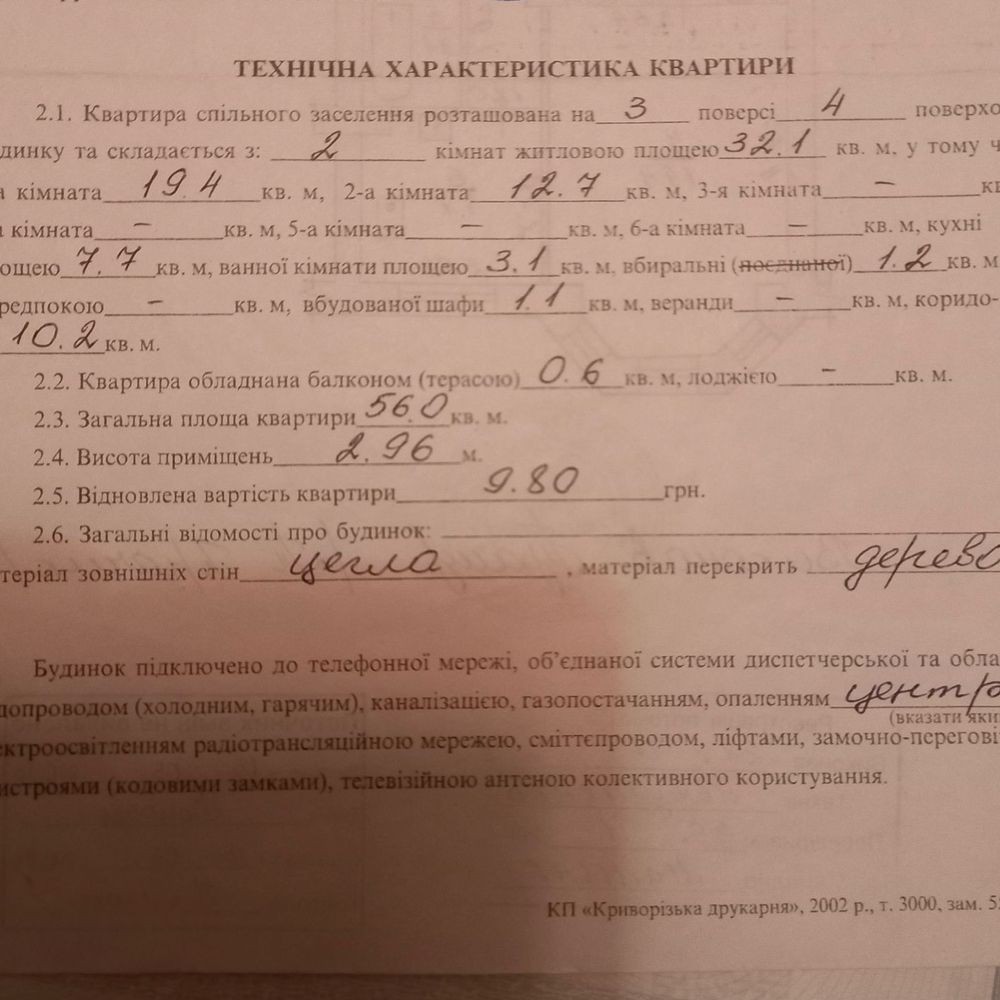 ТЕХНІЧНА ХАРАКТЕРИСТИКА КВАРТИРИ
2.1. Квартира спільного заселення розташована на 3 поверсі 4 поверхо
динку та складається з: 2 кімнат житловою площею 32.1 кв. м, у тому ч
а кімната 19.4 кв. м, 2-а кімната 12.7 кв. м, 3-я кімната – кв
а кімната – кв. м, 5-а кімната – кв. м, 6-а кімната – кв. м, кухні
ощею 7.7 кв. м, ванної кімнати площею 3.1 кв. м, вбиральні (поєднаної) 1.2 кв. м
редпокою – кв. м, вбудованої шафи 1.1 кв. м, веранди – кв. м, коридо-
10.2 кв. м.
2.2. Квартира обладнана балконом (терасою) 0.6 кв. м, лоджією – кв. м.
2.3. Загальна площа квартири 56.0 кв. м.
2.4. Висота приміщень 2.96 м.
2.5. Відновлена вартість квартири 9.80 грн.
2.6. Загальні відомості про будинок:
теріал зовнішніх стін цегла , матеріал перекрить дерево
Будинок підключено до телефонної мережі, об’єднаної системи диспетчерської та обла
допроводом (холодним, гарячим), каналізацією, газопостачанням, опаленням центр
(вказати яки
ектроосвітленням радіотрансляційною мережею, сміттєпроводом, ліфтами, замочно-перегові
истроями (кодовими замками), телевізійною антеною колективного користування.
КП «Криворізька друкарня», 2002 р., т. 3000, зам. 5